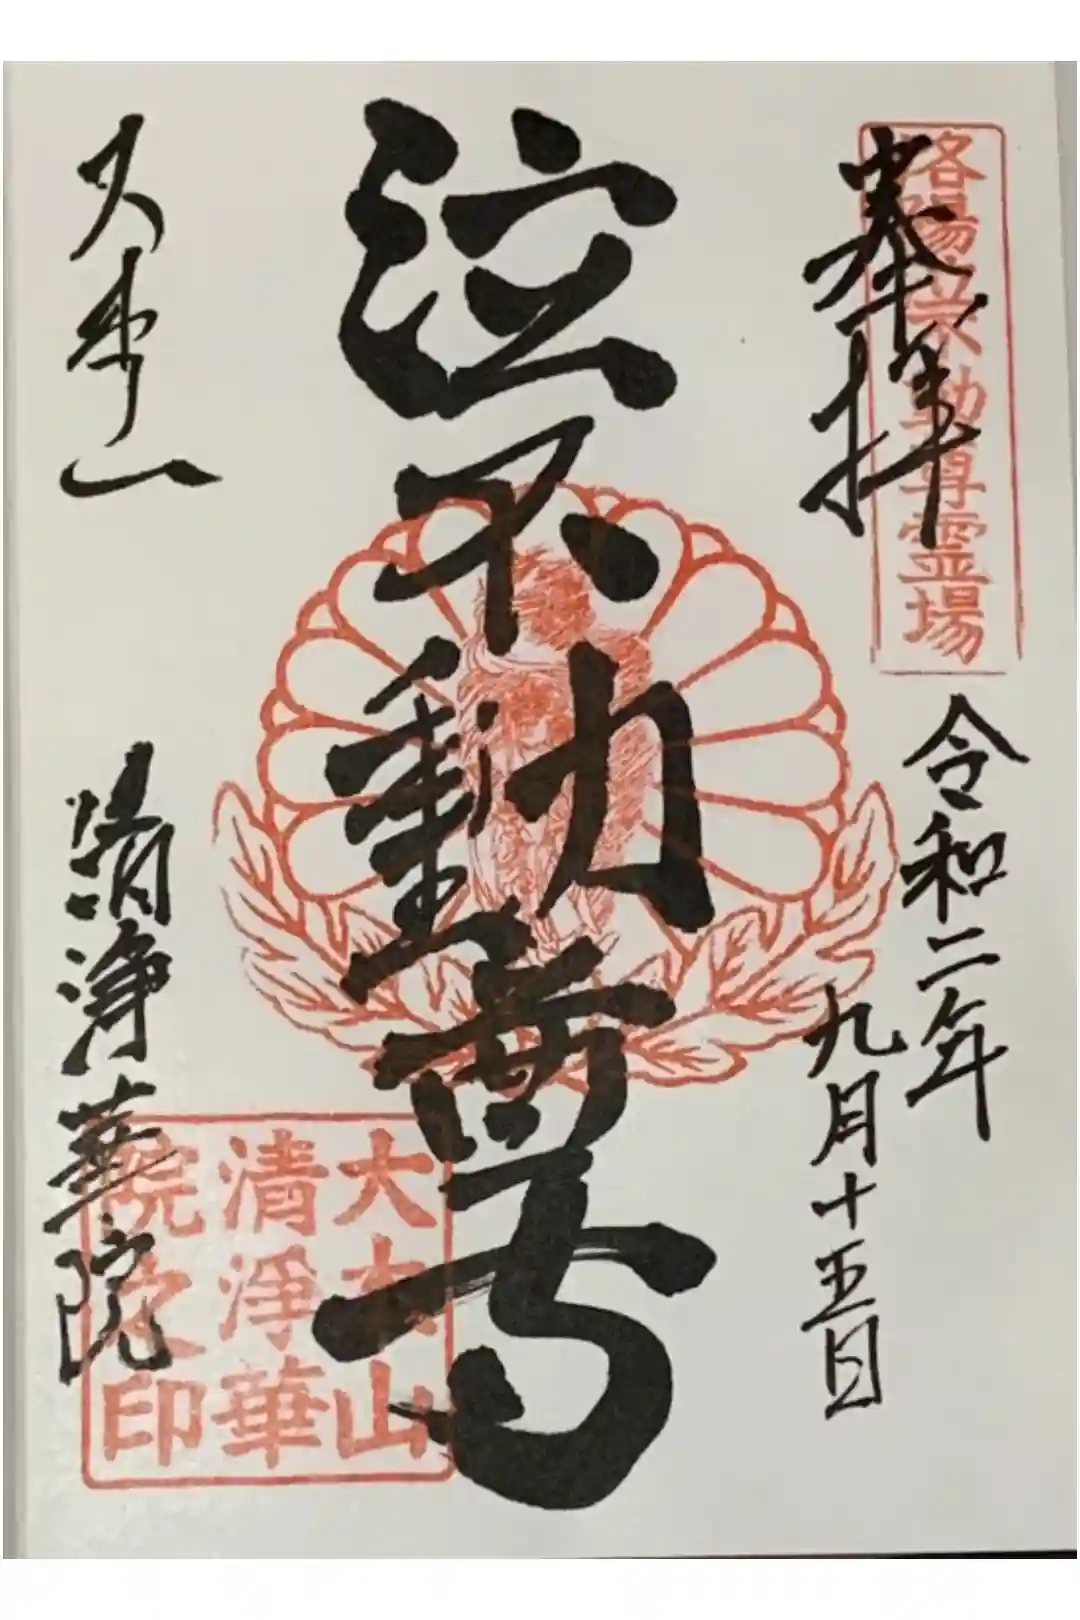 奉拝
洛陽六不動尊霊場
令和二年
九月十五日
泣不動尊
大本山
清浄華院
大本山
清浄華
院之印